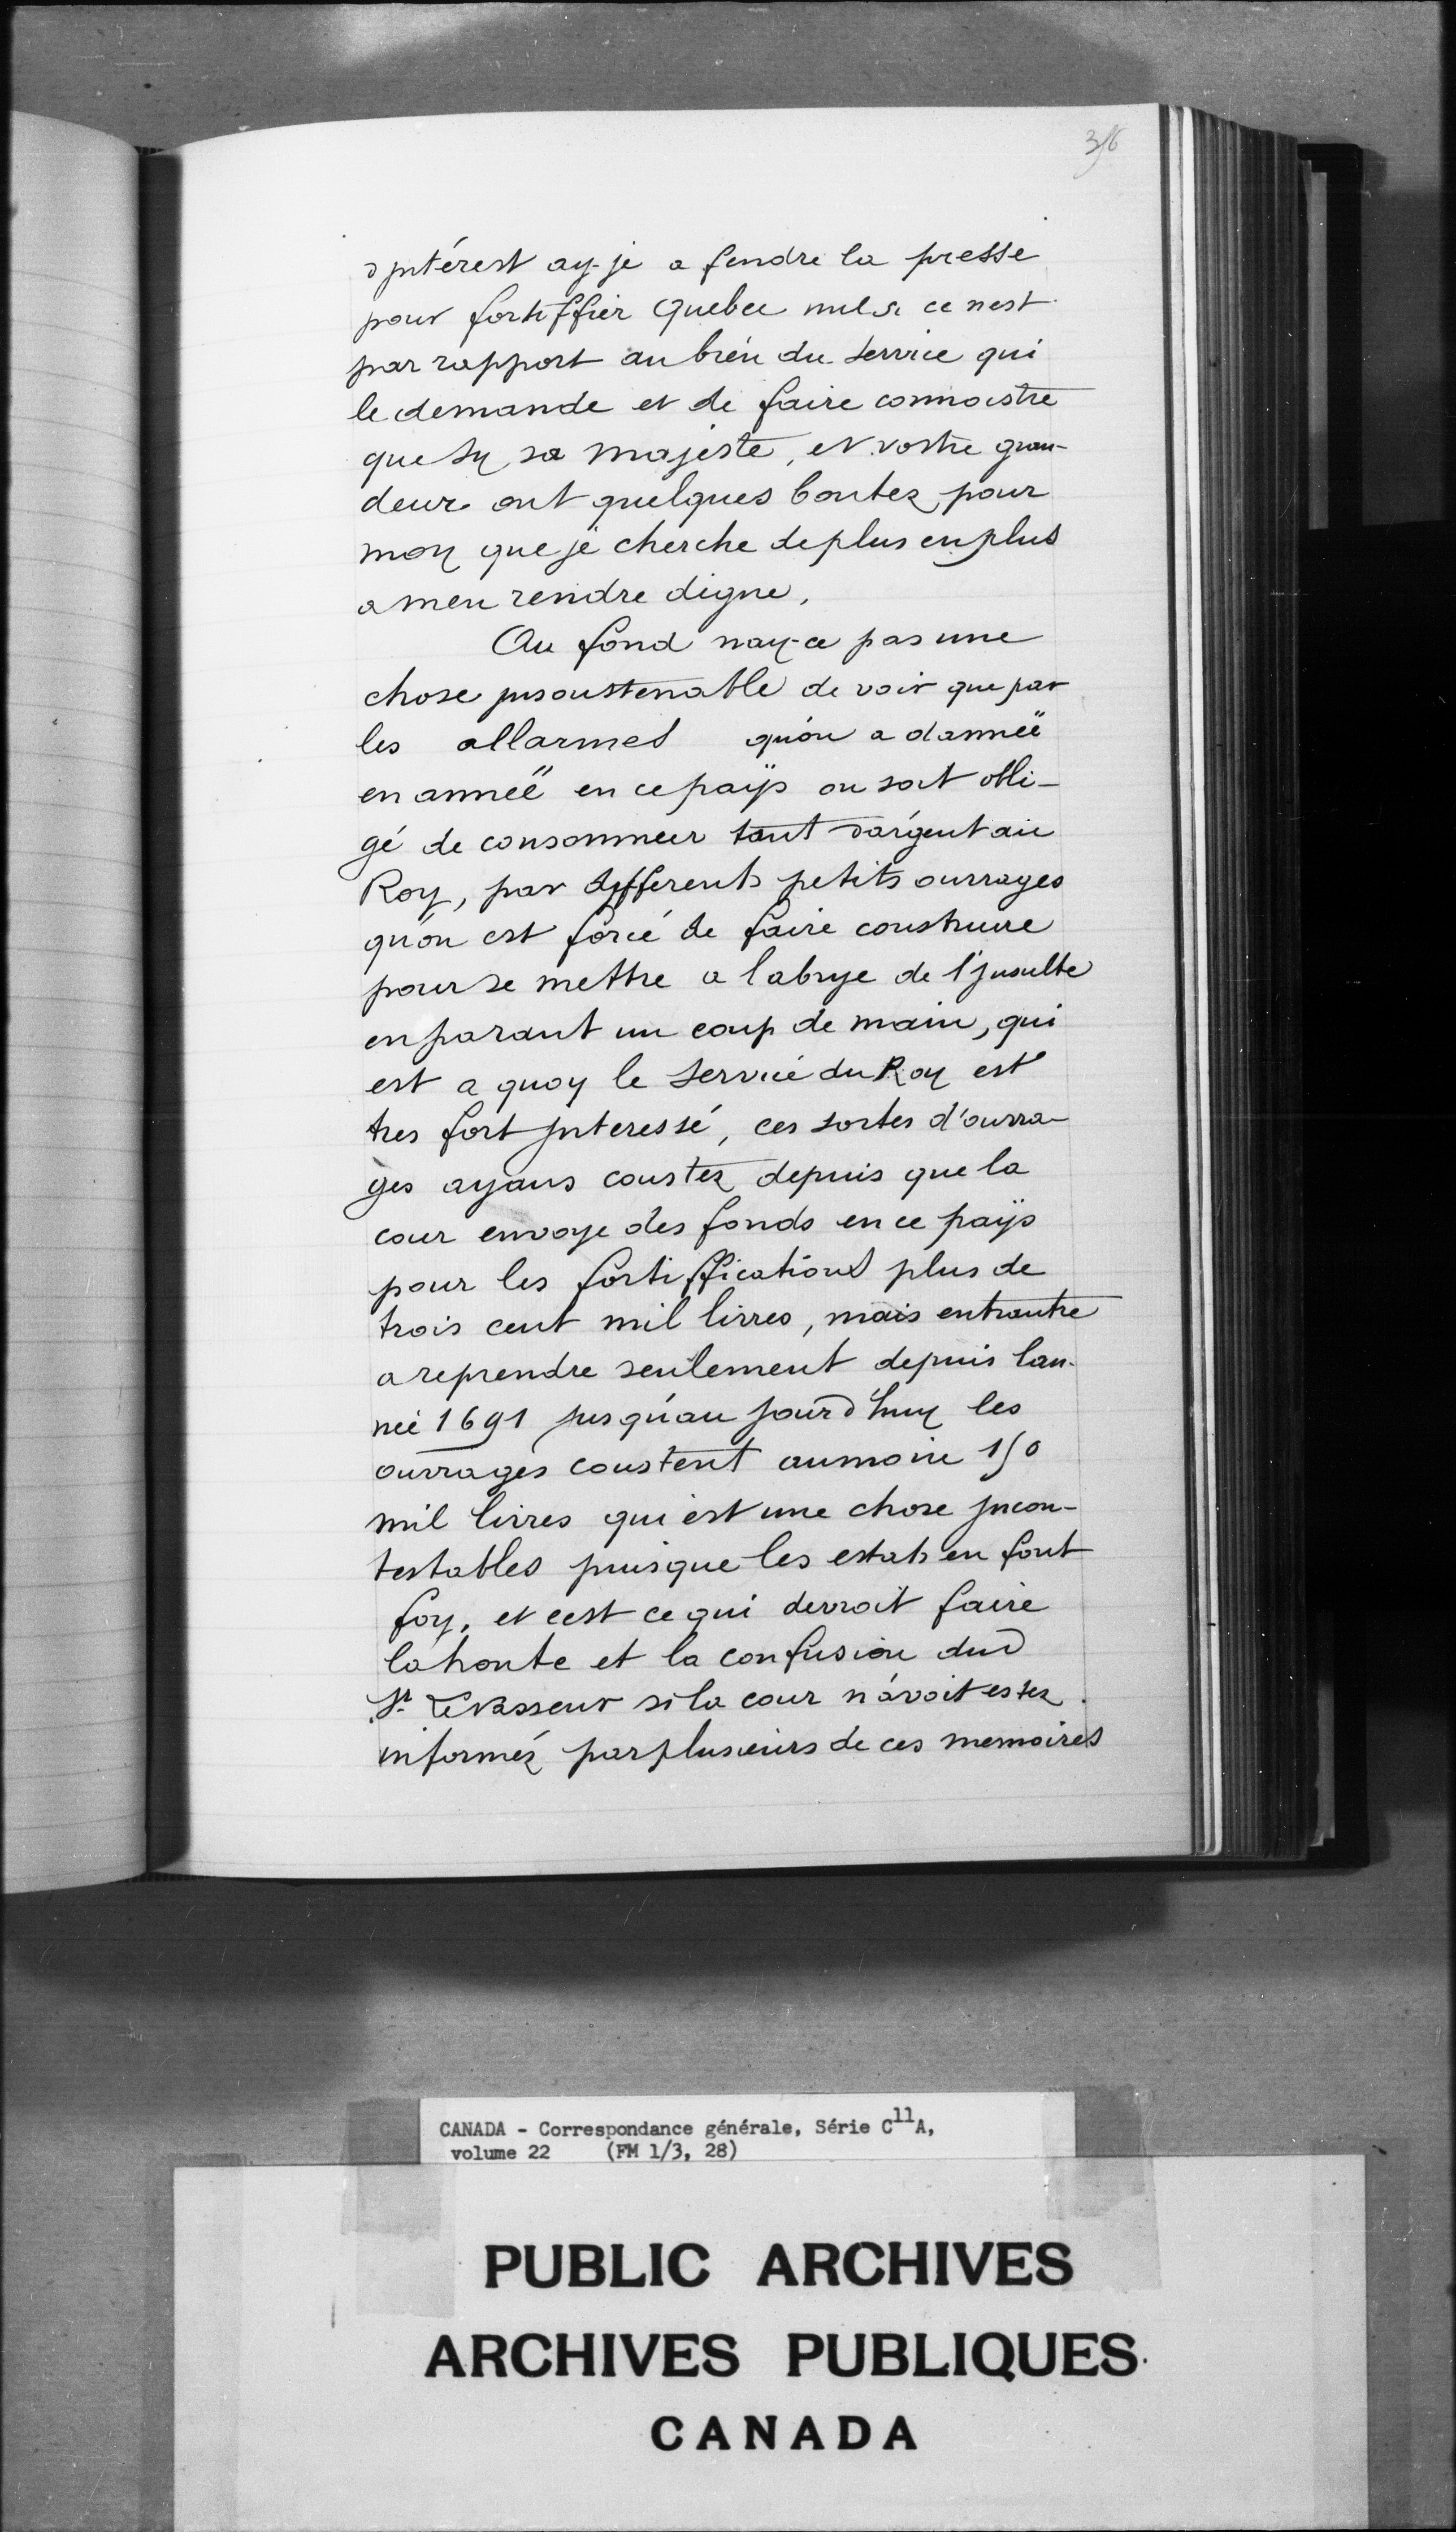 356
d jntérest ay-je a fendre la presse
pour fortiffier Quebec nul si ce nest
par rapport au bien du service qui
le demande et de faire connoistre
que sy sa majesté, et vostre gran-
deur ont quelques bontez pour
moy que je cherche de plus en plus
a men rendre digne,
Au fond nay-ce pas une
chose jnsoustenable de voir que par
les allarmes qu'on a dannéë
en annéë en ce païjs on soit obli-
gé de consommeer tant dargent au
Roy, par differents petits ouvrages
qu'on est forcé de faire construire
pour se mettre a labrye de l'jnsulte
en parant un coup de main, qui
est a quoy le service du Roy est
tres fort jnteressé, ces sortes d'ouvra-
ges ayans coustez depuis que la
cour envoye des fonds en ce païjs
pour les fortiffications plus de
trois cent mil livres, mais entrautre
a reprendre seulement depuis lan-
neé 1691 jusqu'au jourd'huy les
ouvrages coustent aumoins 150
mil livres qui est une chose jncon-
testables puisque les estats en font
foy, et cest ce qui devroit faire
la honte et la confusion dud
Sr Levasseur si la cour n'avoit estez
informéz par plusieurs de ces memoires
CANADA - Correspondance générale, Série C11A,
volume 22 (FM 1/3, 28)
PUBLIC ARCHIVES
ARCHIVES PUBLIQUES
CANADA